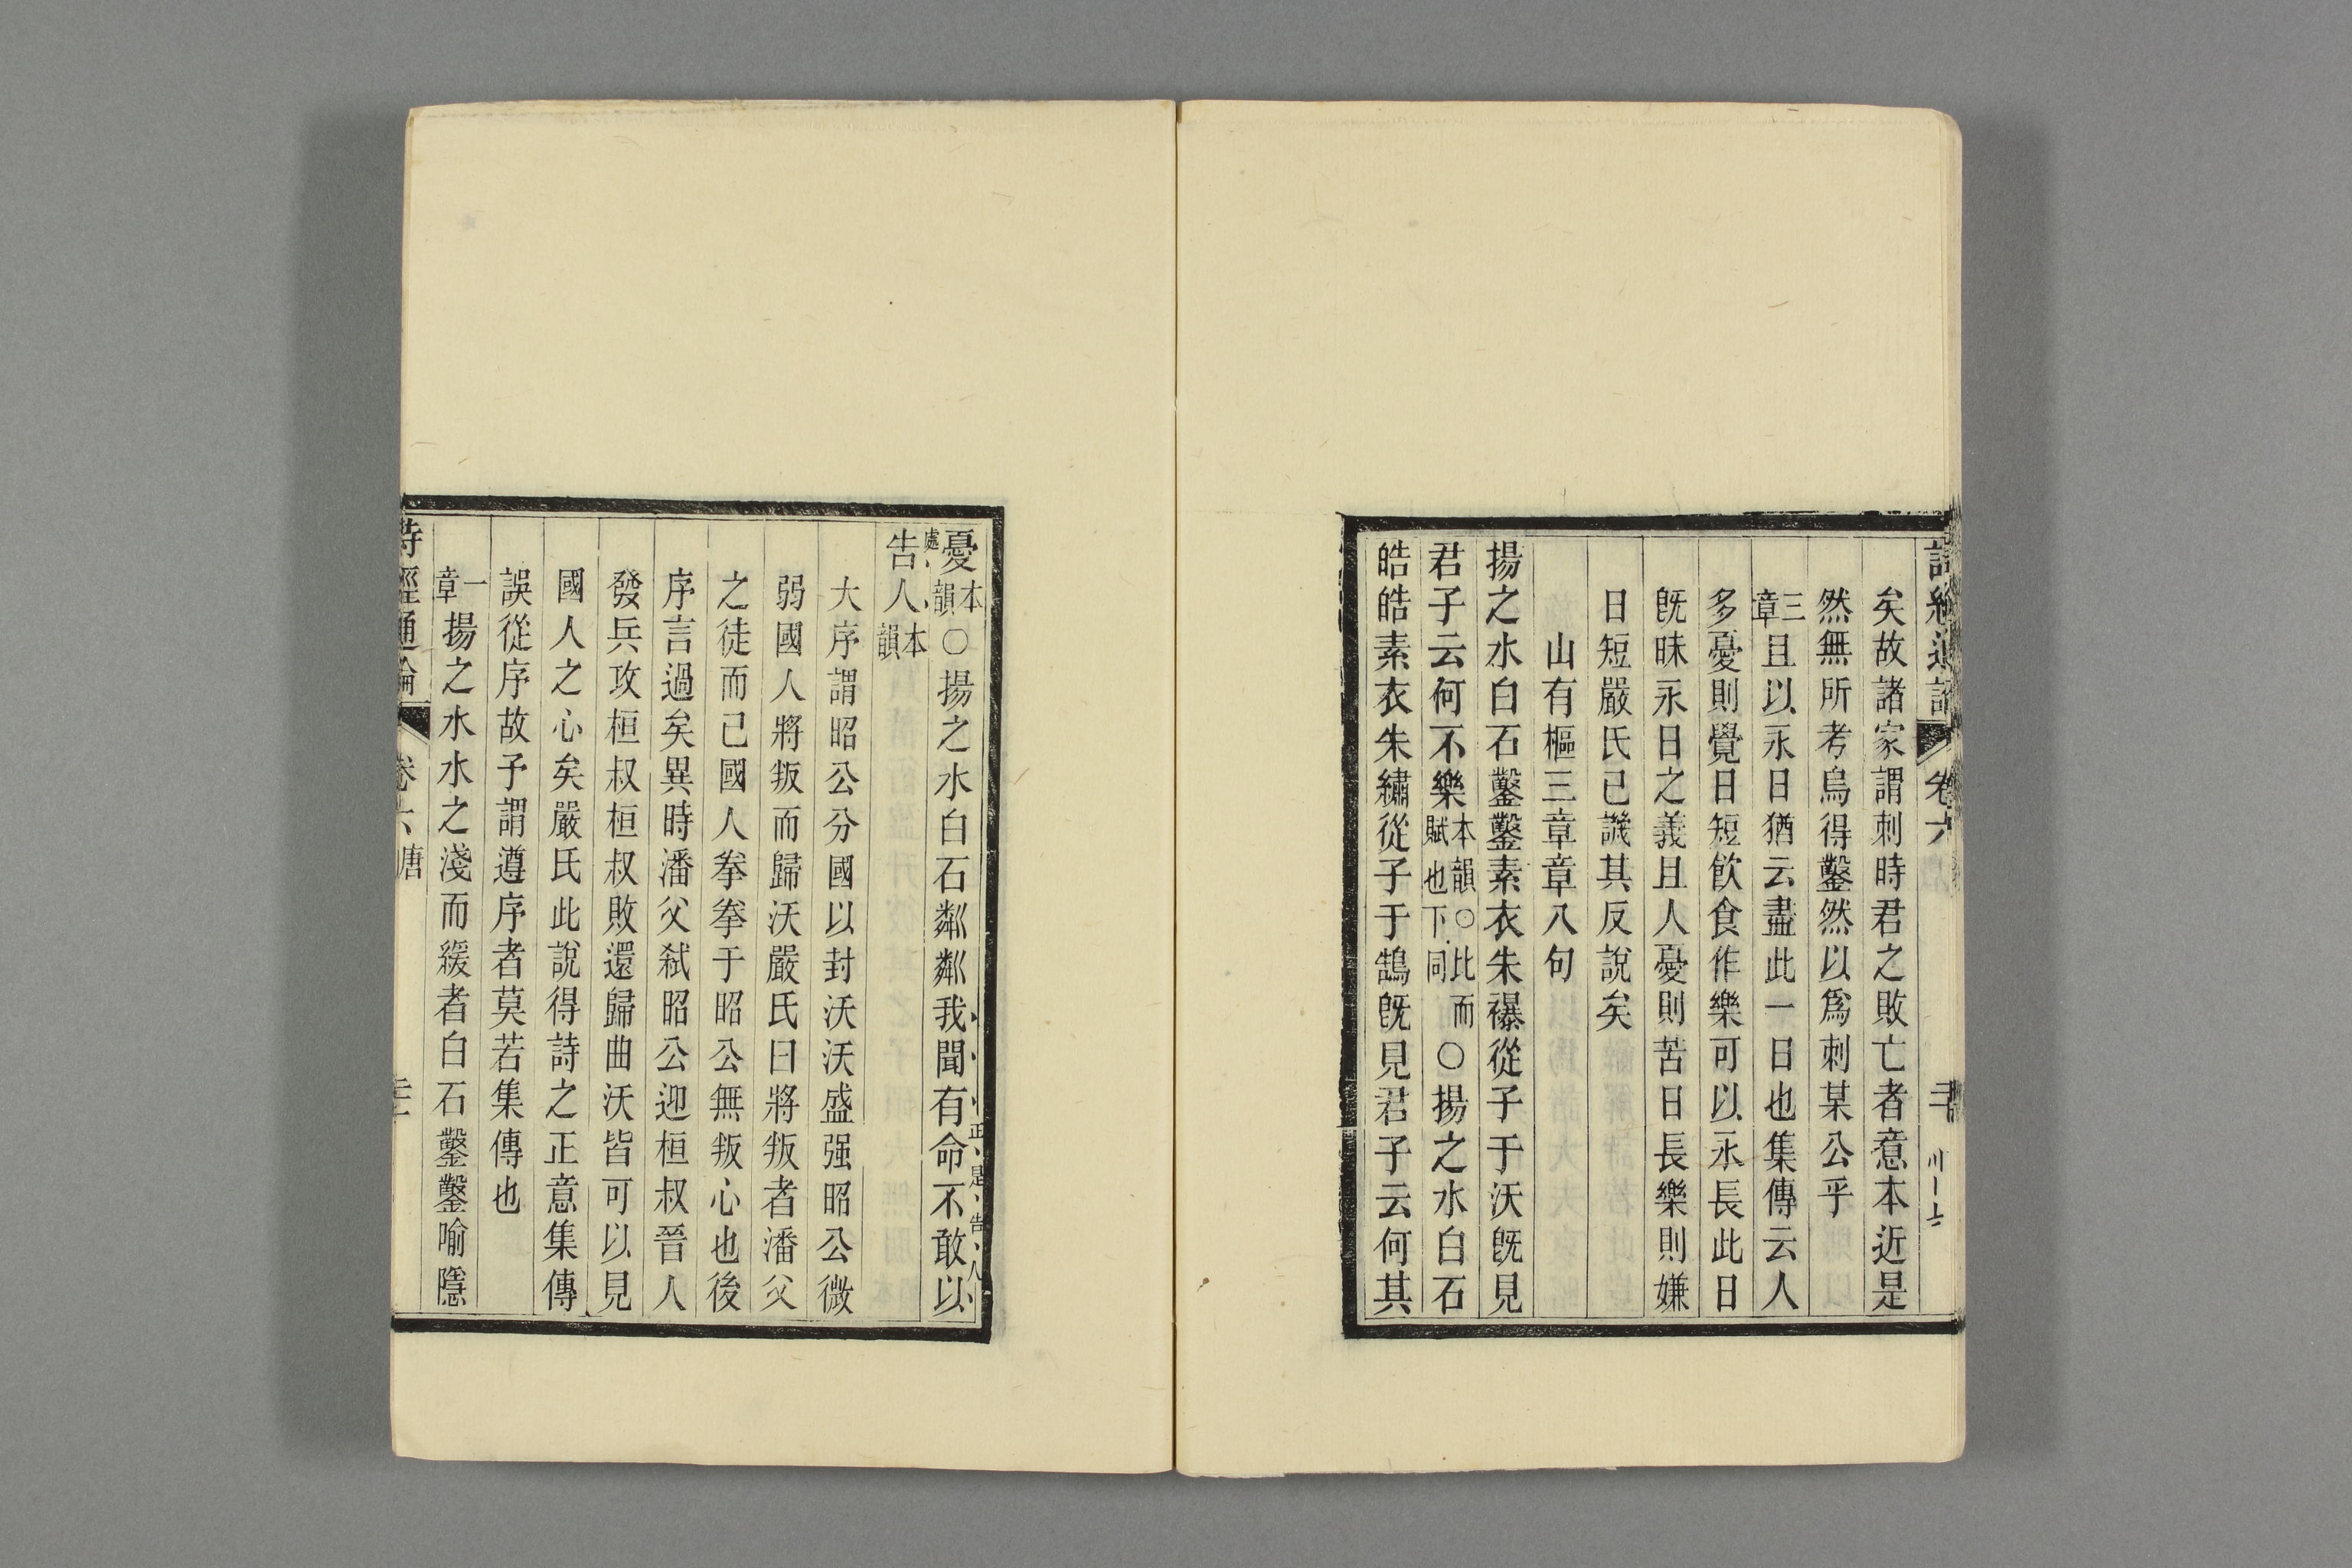 詩經通論 卷六
矣故諸家謂刺時君之敗亡者意本近是
然無所考烏得鑿然以爲刺某公乎
三章且以永日猶云盡此一日也集傳云人
多憂則覺日短飲食作樂可以永長此日
旣昧永日之義且人憂則苦日長樂則嫌
日短嚴氏已譏其反說矣
山有樞三章章八句
揚之水白石鑿鑿素衣朱襮從子于沃旣見
君子云何不樂本韻○比而賦也下同○揚之水白石
皓皓素衣朱繡從子于鵠旣見君子云何其
憂本韻○揚之水白石粼粼我聞有命不敢以
正是告人處
告人本韻
大序謂昭公分國以封沃沃盛强昭公微
弱國人將叛而歸沃嚴氏曰將叛者潘父
之徒而已國人拳拳于昭公無叛心也後
序言過矣異時潘父弒昭公迎桓叔晉人
發兵攻桓叔桓叔敗還歸曲沃皆可以見
國人之心矣嚴氏此說得詩之正意集傳
誤從序故予謂遵序者莫若集傳也
一章揚之水水之淺而緩者白石鑿鑿喻隱
詩經通論 卷六唐